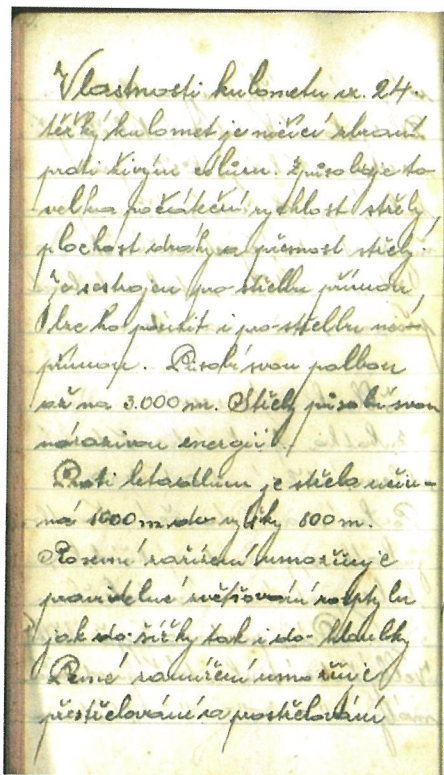 Vlastnosti kulometu vz. 24.
těžký kulomet je ničící zbraní
proti živým cílům. Způsobuje to
velká počáteční rychlost střely,
plochost dráhy a přesnost střely.
Je sestrojen pro střelbu přímou,
lze ho použít i pro střelbu ne-
přímou. Působí svou palbou
až na 3.000 m. Střely působí svou
nárazivou energií.
Proti letadlům je střela účin-
ná 1000 m do výšky 800 m.
zařízení umožňuje
pravidelné zvětšování rozptylu
jak do šířky tak i do hloubky
Pevné zamíření umožňuje
přestřelování a prostřelování